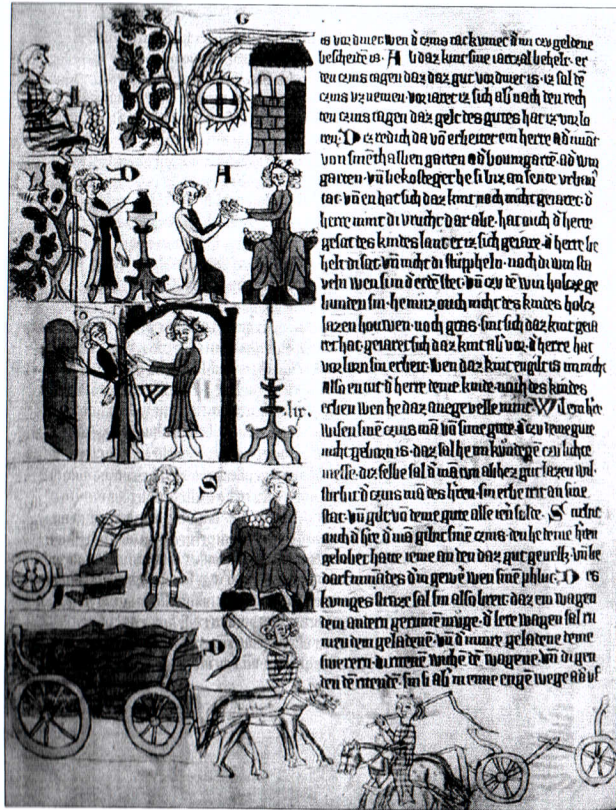 G
D A
W
lix.
S
D
is vordinet wen d̕ czins tac kumet d̕ im czu geldene
bescheiden is. A b daz kint sine iarczal beheldet er
den czins tagen daz daz gut vordinet is. iz sal den
czins vz nemen. voriaret iz sich ab nach den rech
ten czins tagen daz gelt des gutes hat iz vorlo
ren. D iz redich da von erbeitet ein herre ad̕ man
von hallien garten ad̕ boumgarten ad̕ win
garten. vn̄ bekostegete he si biz an sente vrbans
tac. vn̄ en hat sich daz kint noch nicht geiaret. d̕
herre nimt di vrucht dar abe. hat ouch d̕ herre
geset des kindes lant er iz sich geiare. d̕ herre be
helt di sat. vn̄ nicht di stuppheln. noch di win sta
veln wen si in d̕ erde sten. vn̄ czu dem win holcze ge
bunden sin. he muz ouch nicht des kindes holcz
lazen houwen. noch gras. sint sich daz kint geia
ret hat. geiaret sich daz kint ab vor d̕ herre hat
vorlorn sin erbeit. wen daz kint engilt is im nicht
also en tut d̕ herre deme kinde noch des kindes
erben wen he daz anegevelle nimt. W il ein h̕re
wisen sinen czins man von sime gute. d̕ czu deme gute
nicht geborn is. daz sal he im kundegen czu lichte
messe. diz selbe sal d̕ man tun ab hez gut lazen wil.
stirbit d̕ czins man des h̕ren. sin erbe trit an sine
stat. vn̄ gilt von deme gute alse iener solde. S tirbit
ouch d̕ h̕re d̕ man gibit sinen czins. den he deme h̕ren
gelobet hatte ieme an den daz gut gevelt. vn̄ he
darf nimandes d̕ in gewer wen sinen phluc. D es
kuniges straze sal sin also breit. daz ein wagen
dem andern gerumen muge. d̕ lere wagen sal ru
men dem geladenen. vn̄ d̕ minre geladene deme
swerern. di ritene wiche dem wagene. vn̄ di gen
den dem ritende. sin si ab in eime engen wege ad̕ vf